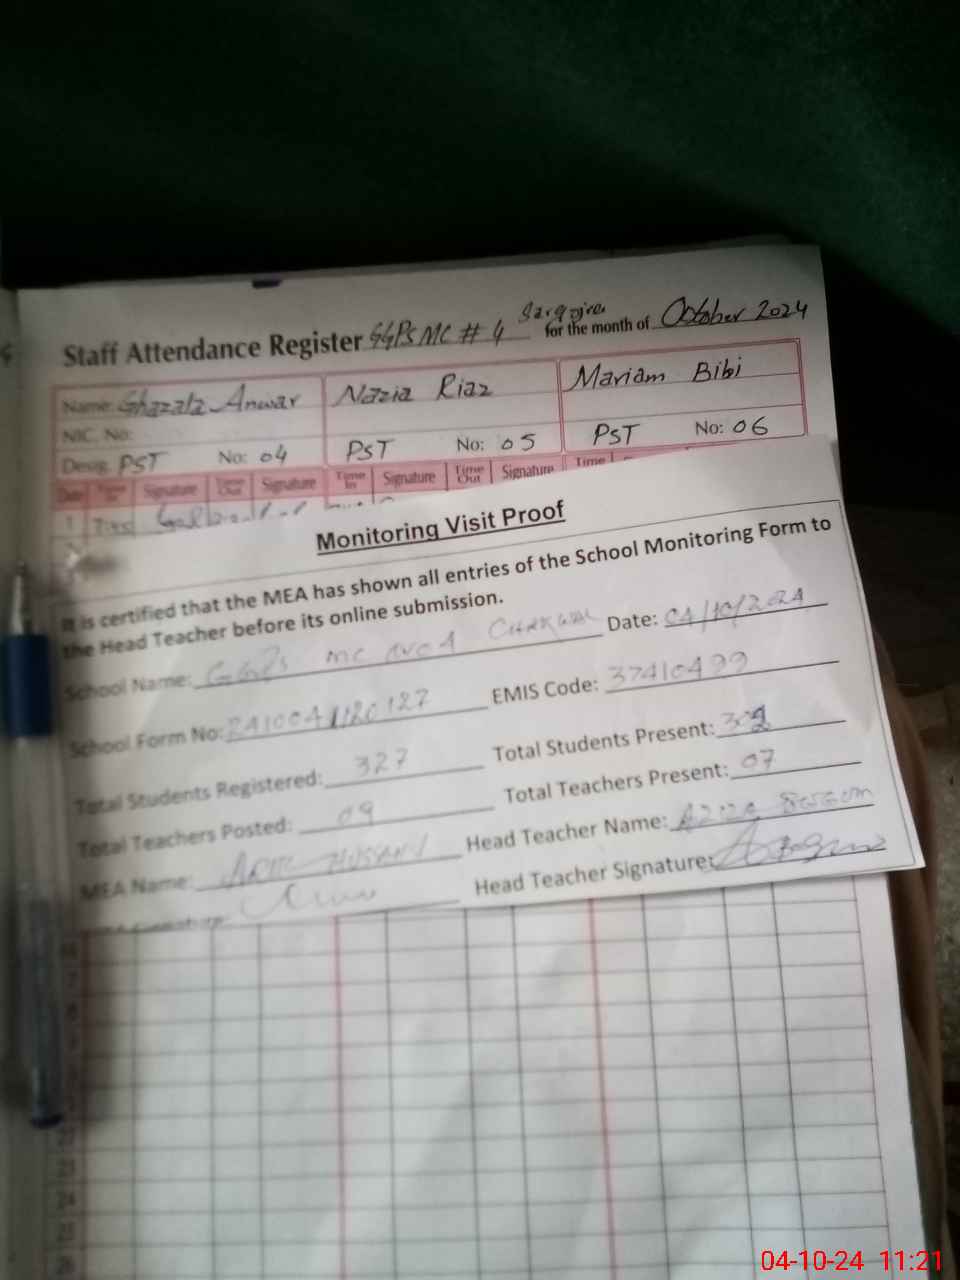 Staff Attendance Register GGPS MC # 4 for the month of October 2024
Name: Ghazala Anwar Nazia Riaz Mariam Bibi
NIC. No:
Desig. PST No: 04 PST No: 05 PST No: 06
Date Time In Signature Time Out Signature Time In Signature Time Out Signature Time
1
Monitoring Visit Proof
It is certified that the MEA has shown all entries of the School Monitoring Form to
the Head Teacher before its online submission.
School Name: GGPS MC NO 4 CHAKWAL Date: 04/10/2024
School Form No: EMIS Code: 37410499
Total Students Registered: 327 Total Students Present:
Total Teachers Posted: 09 Total Teachers Present: 07
MEA Name: Head Teacher Name: AZIZA BEGUM
Head Teacher Signature:
04-10-24 11:21